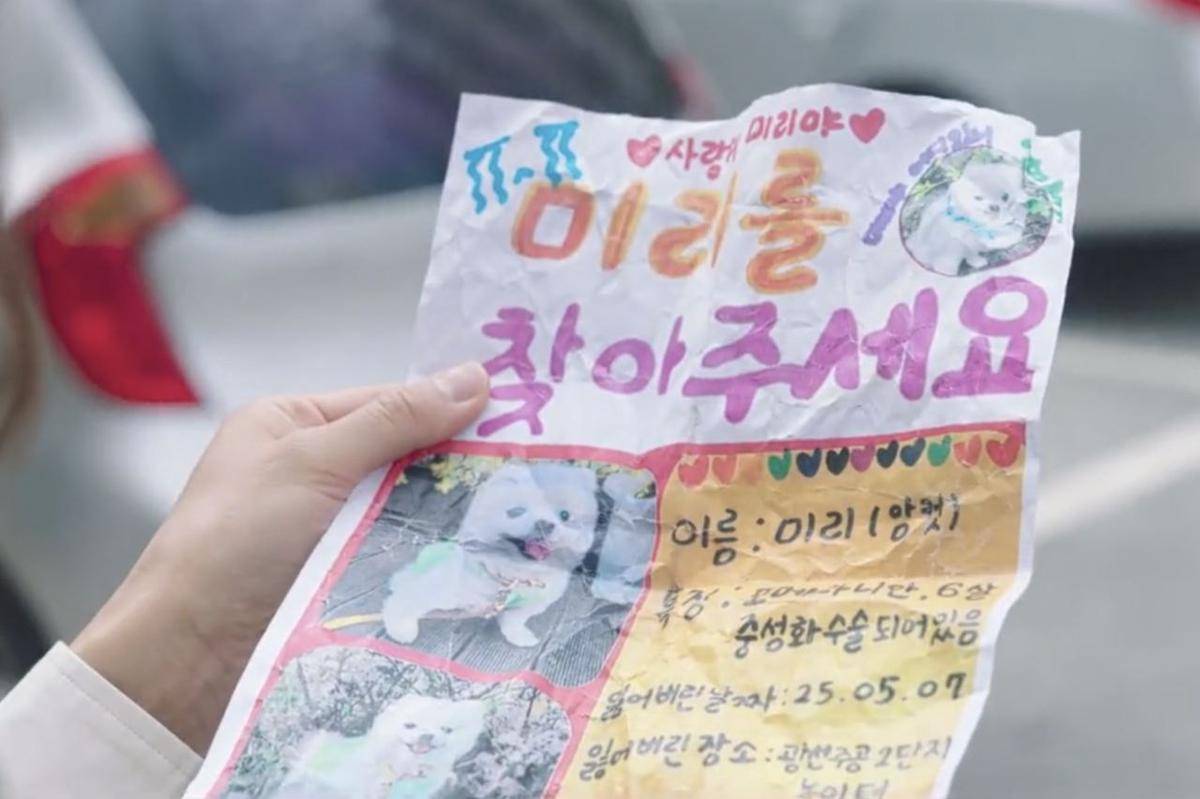 ㅠㅠ
♥사랑해 미리야♥
미리를
찾아주세요
이름 : 미리 (암컷)
특징 : 포메라니안, 6살
중성화수술되어있음
잃어버린날짜 : 25.05.07
잃어버린 장소 : 광변주공2단지
놀이터